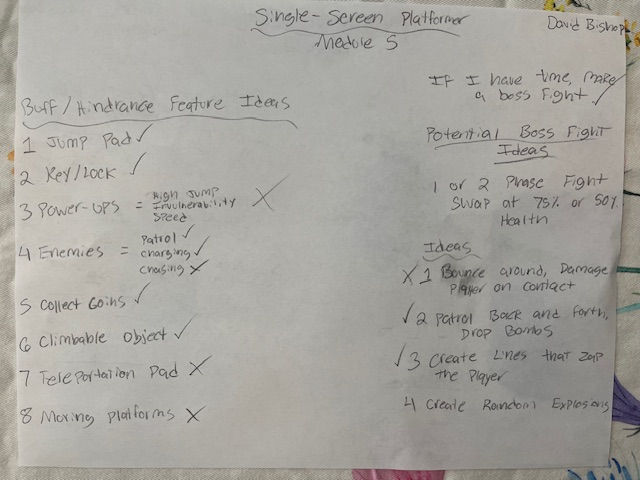 Single-Screen Platformer
David Bishop
Module 5
If I have time, make
a boss fight ✓
Buff/Hindrance Feature Ideas
1 Jump Pad ✓
2 Key/Lock ✓
3 Power-ups = High Jump
Invulnerability
Speed X
4 Enemies = Patrol ✓
charging ✓
chasing X
5 Collect Coins ✓
6 Climbable Object ✓
7 Teleportation Pad X
8 Moving Platforms X
Potential Boss Fight
Ideas
1 or 2 Phase Fight
Swap at 75% or 50%
Health
Ideas
X 1 Bounce around, Damage
Player on contact
✓ 2 Patrol Back and Forth,
Drop Bombs
✓ 3 Create Lines that zap
the Player
4 Create Random Explosions